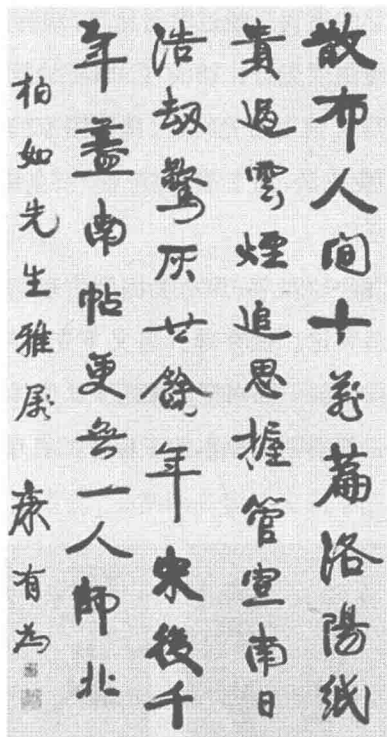 散布人间十万篇洛陽紙
貴過雲煙追思握管宣南日
浩劫驚灰廿餘年宋後千
年盖南帖更无一人師北
柏如先生雅属 康有為